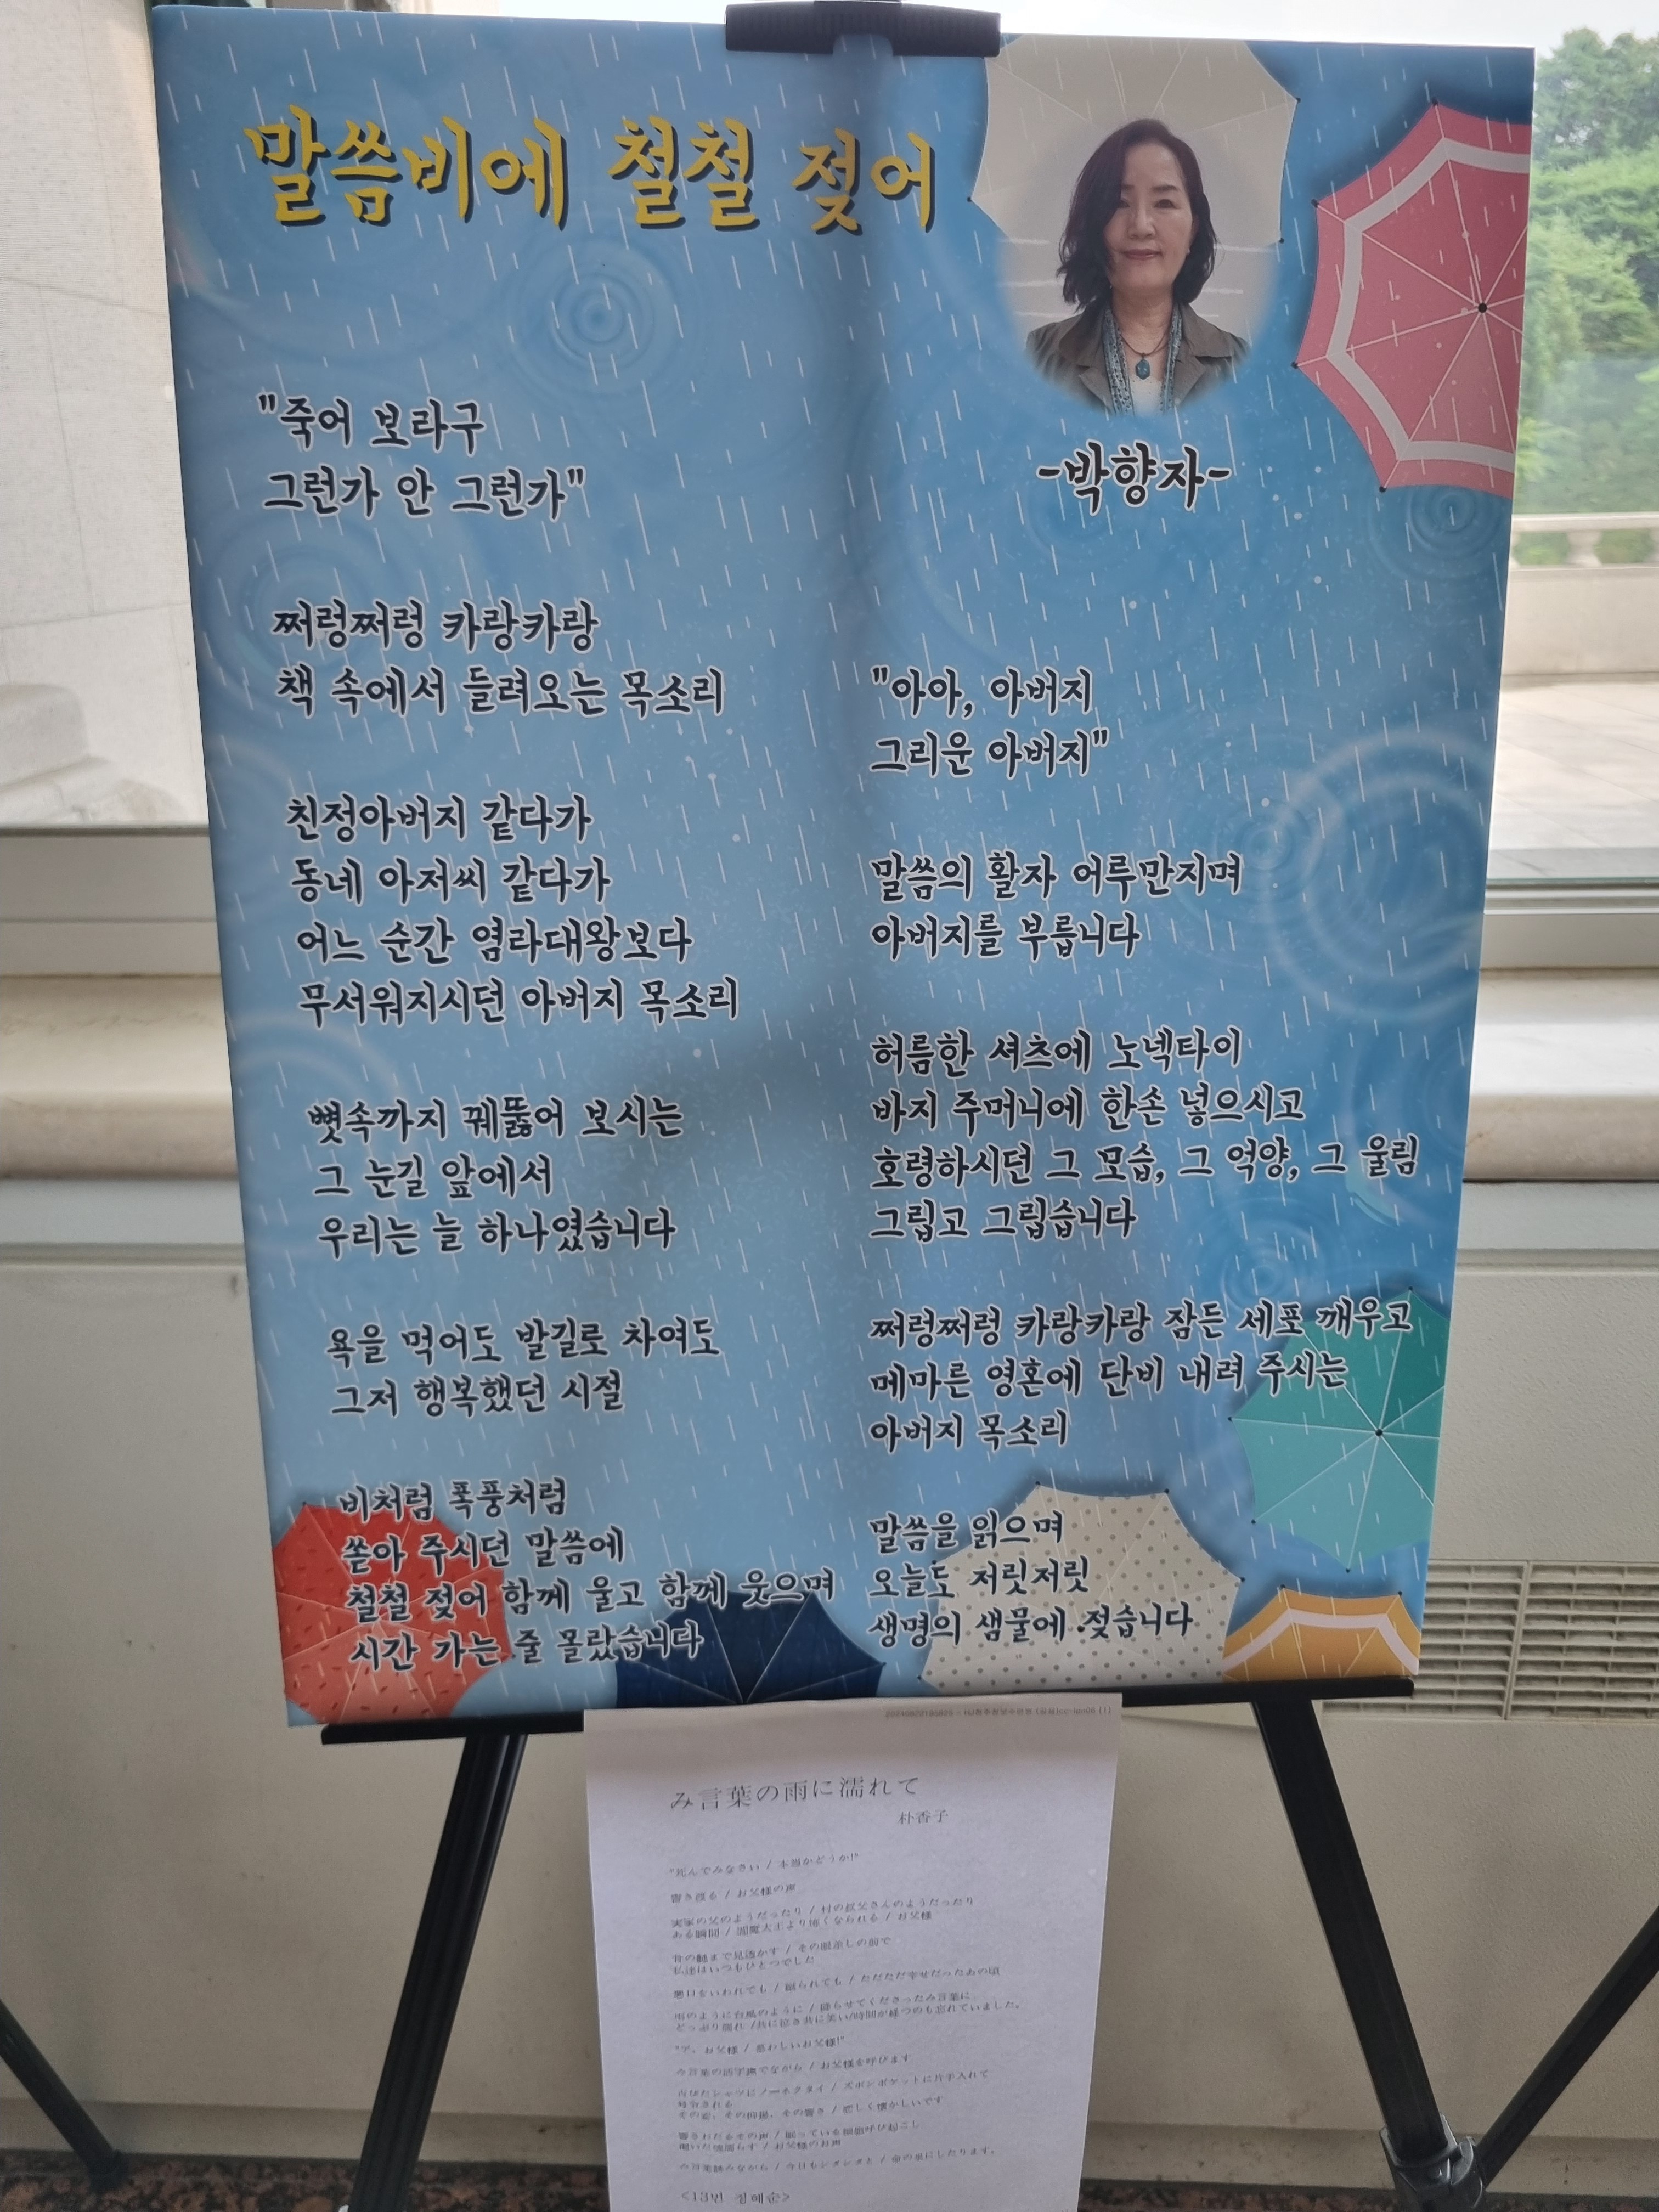 말씀비에 철철 젖어
-박향자-
"죽어 보라구
그런가 안 그런가"
쩌렁쩌렁 카랑카랑
책 속에서 들려오는 목소리
친정아버지 같다가
동네 아저씨 같다가
어느 순간 염라대왕보다
무서워지시던 아버지 목소리
뼛속까지 꿰뚫어 보시는
그 눈길 앞에서
우리는 늘 하나였습니다
욕을 먹어도 발길로 차여도
그저 행복했던 시절
비처럼 폭풍처럼
쏟아 주시던 말씀에
철철 젖어 함께 울고 함께 웃으며
시간 가는 줄 몰랐습니다
"아아, 아버지
그리운 아버지"
말씀의 활자 어루만지며
아버지를 부릅니다
허름한 셔츠에 노넥타이
바지 주머니에 한손 넣으시고
호령하시던 그 모습, 그 억양, 그 울림
그립고 그립습니다
쩌렁쩌렁 카랑카랑 잠든 세포 깨우고
메마른 영혼에 단비 내려 주시는
아버지 목소리
말씀을 읽으며
오늘도 저릿저릿
생명의 샘물에 젖습니다
み言葉の雨に濡れて
朴香子
"死んでみなさい / 本当かどうか!"
響き渡る / お父様の声
実家の父のようだったり / 村の叔父さんのようだったり
ある瞬間 / 閻魔大王より怖くなられる / お父様
骨の髄まで見透かす / その眼差しの前で
私達はいつもひとつでした
悪口をいわれても / 蹴られても / ただただ幸せだったあの頃
雨のように台風のように / 降らせてくださったみ言葉に
どっぷり濡れ /共に泣き共に笑い/時間が経つのも忘れていました。
お父様 / 慕わしいお父様!"
み言葉の活字撫でながら / お父様を呼びます
シャツにノーネクタイ / ズボンポケットに片手入れて
号令される
その姿、その抑揚、その響き / 恋しく懐かしいです
響きわたるその声 / 眠っている細胞呼び起こし
お父様のお声
み言葉読みながら / 今日も
<13번 정혜순>